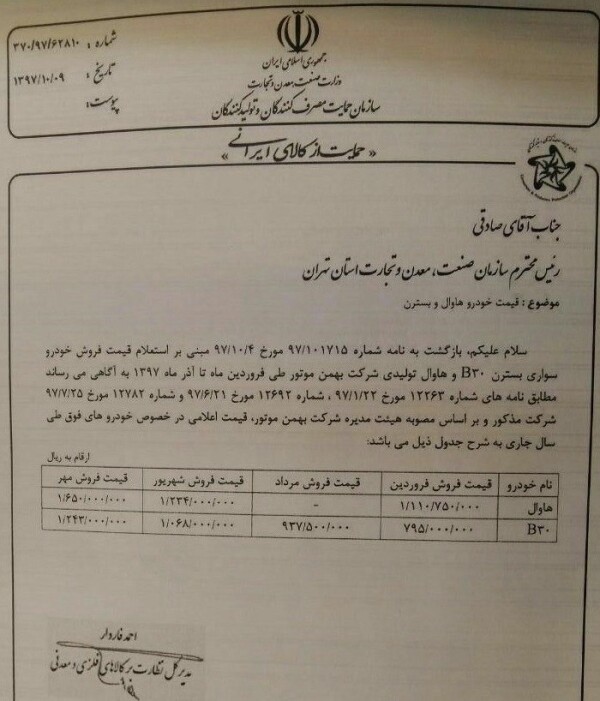 جمهوری اسلامی ایران
وزارت صنعت، معدن و تجارت
سازمان حمایت مصرف کنندگان و تولیدکنندگان
شماره : ۳۷۰/۹۷/۶۲۸۱۰
تاریخ : ۱۳۹۷/۱۰/۰۹
پیوست:
« حمایت از کالای ایرانی »
جناب آقای صادقی
رئیس محترم سازمان صنعت، معدن و تجارت استان تهران
موضوع : قیمت خودرو هاوال و بسترن
سلام علیکم، بازگشت به نامه شماره ۹۷/۱۰۱۷۱۵ مورخ ۹۷/۱۰/۴ مبنی بر استعلام قیمت فروش خودرو
سواری بسترن B۳۰ و هاوال تولیدی شرکت بهمن موتور طی فروردین ماه تا آذر ماه ۱۳۹۷ به آگاهی می رساند
مطابق نامه های شماره ۱۲۲۶۳ مورخ ۹۷/۱/۲۲ ، شماره ۱۲۶۹۲ مورخ ۹۷/۶/۲۱ و شماره ۱۲۷۸۲ مورخ ۹۷/۷/۲۵
شرکت مذکور و بر اساس مصوبه هیئت مدیره شرکت بهمن موتور، قیمت اعلامی در خصوص خودرو های فوق طی
سال جاری به شرح جدول ذیل می باشد:
ارقام به ریال
نام خودرو قیمت فروش فروردین قیمت فروش مرداد قیمت فروش شهریور قیمت فروش مهر
هاوال ۱/۱۱۰/۷۵۰/۰۰۰ - ۱/۲۳۴/۰۰۰/۰۰۰ ۱/۶۵۰/۰۰۰/۰۰۰
B۳۰ ۷۹۵/۰۰۰/۰۰۰ ۹۳۷/۵۰۰/۰۰۰ ۱/۰۶۸/۰۰۰/۰۰۰ ۱/۲۴۳/۰۰۰/۰۰۰
احمد فاردار
مدیر کل نظارت بر کالاهای فلزی و معدنی